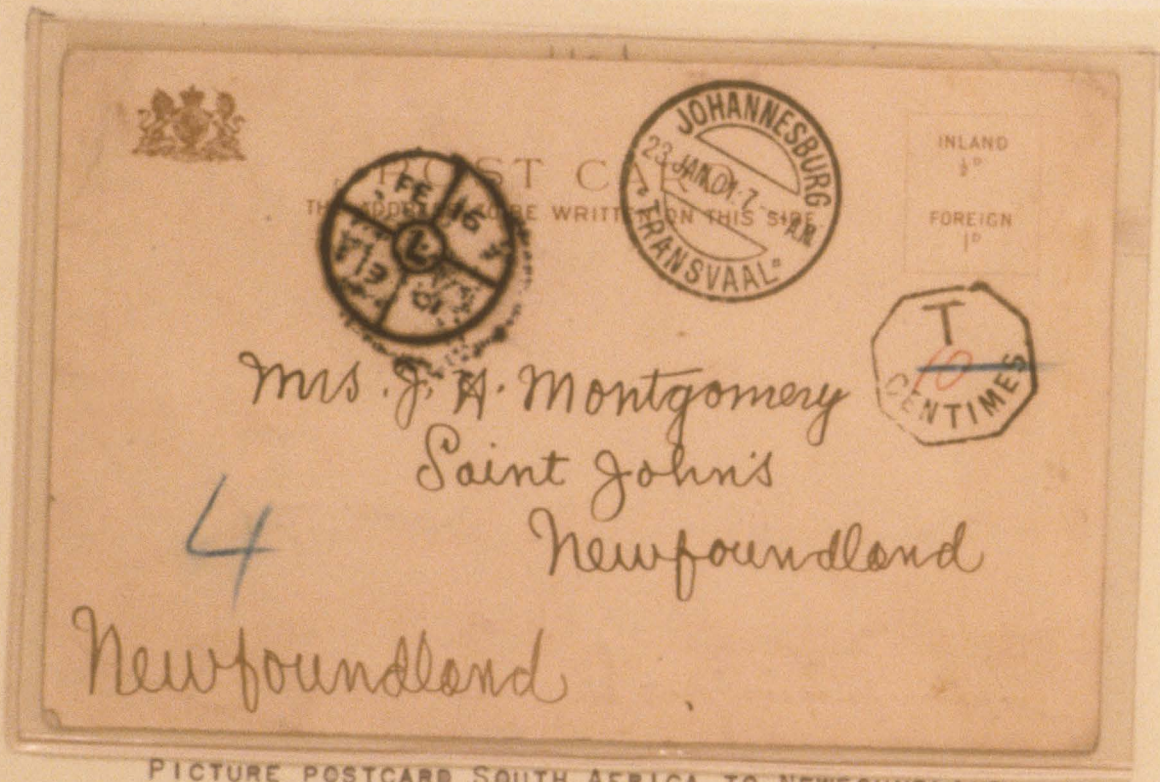 POST CARD
THE ADDRESS TO BE WRITTEN ON THIS SIDE
JOHANNESBURG
23 JAN.01.7-
A.M.
TRANSVAAL
INLAND
½D
FOREIGN
1D
FE 16
01
T
10
CENTIMES
Mrs. J. H. Montgomery
Saint John's
Newfoundland
4
Newfoundland
PICTURE POSTCARD SOUTH AFRICA TO